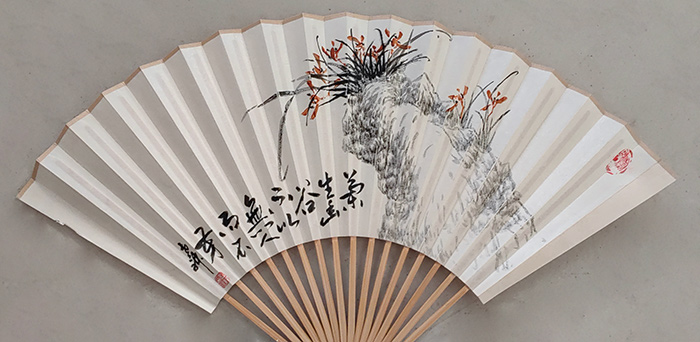 蘭
生幽
谷
不以
無人
而不
芳